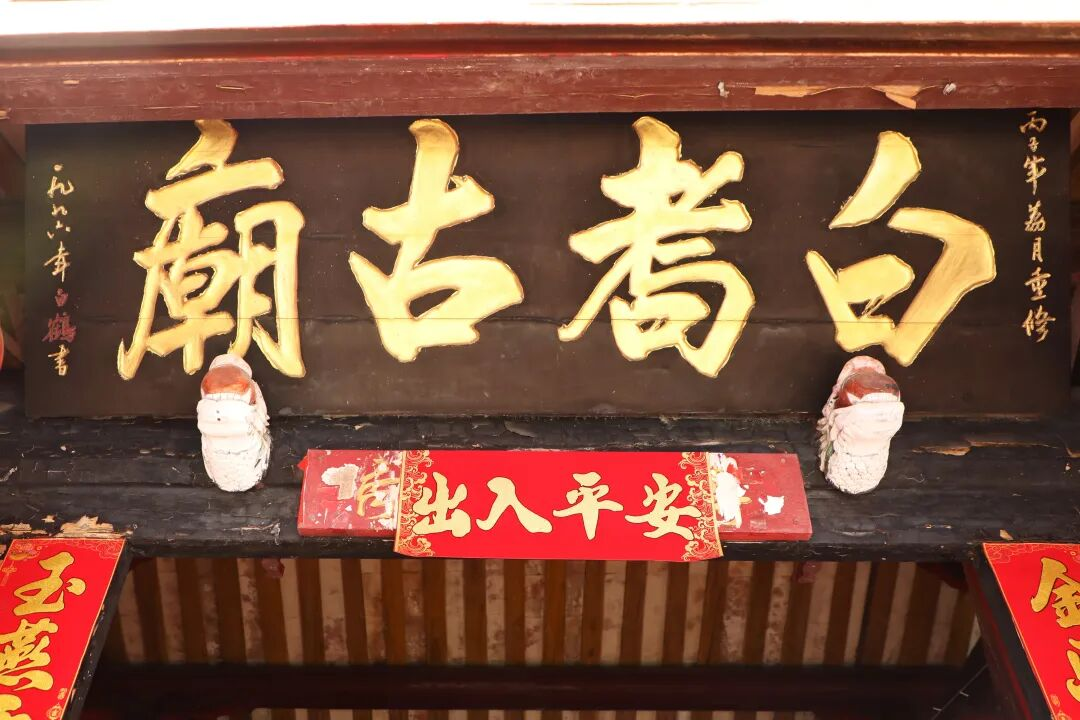 丙子年荔月重修
白耇古廟
一九九六年白鶴書
出入平安
金
玉燕